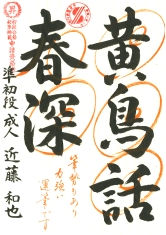 黄鳥話
春深
準初段 成人 近藤和也
筆勢あり
力強い
運筆です